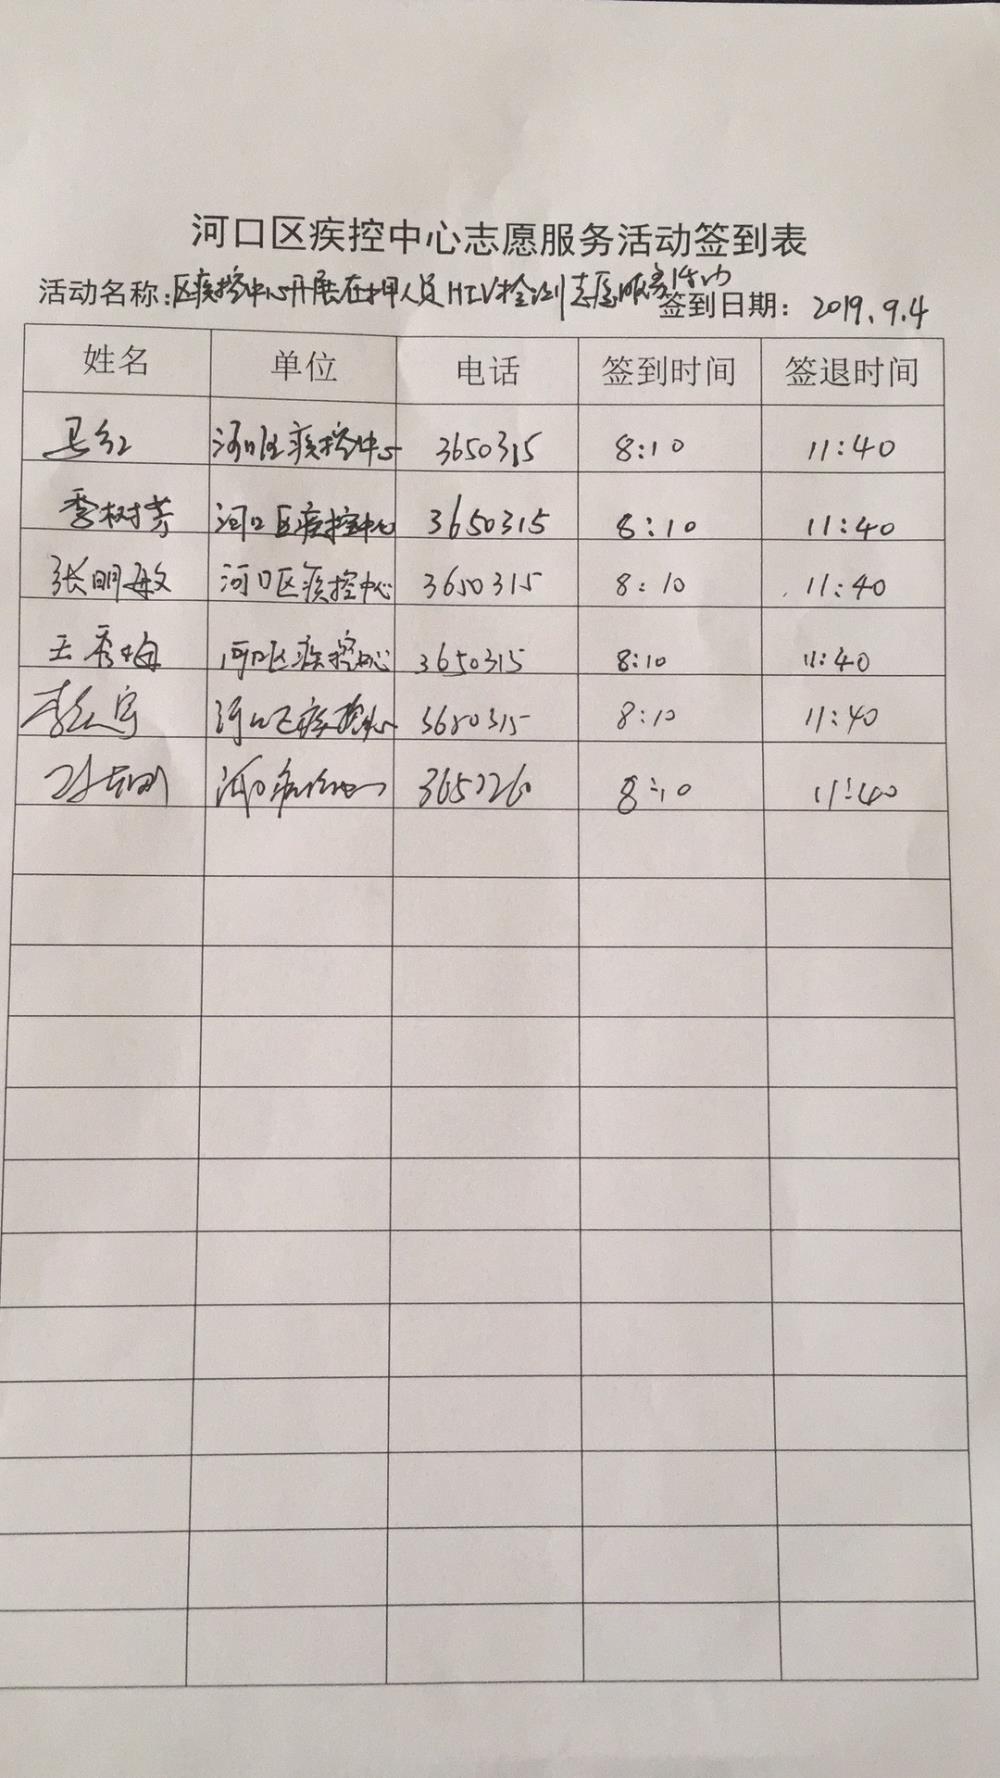 河口区疾控中心志愿服务活动签到表
活动名称:区疾控中心开展在押人员HIV检测志愿服务活动 签到日期: 2019.9.4
姓名 单位 电话 签到时间 签退时间
河口区疾控中心 3650315 8:10 11:40
李树芳 河口区疾控中心 3650315 8:10 11:40
张明敏 河口区疾控中心 3650315 8:10 11:40
王秀梅 河口区疾控中心 3650315 8:10 11:40
河口区疾控中心 3650315 8:10 11:40
8:10 11:40